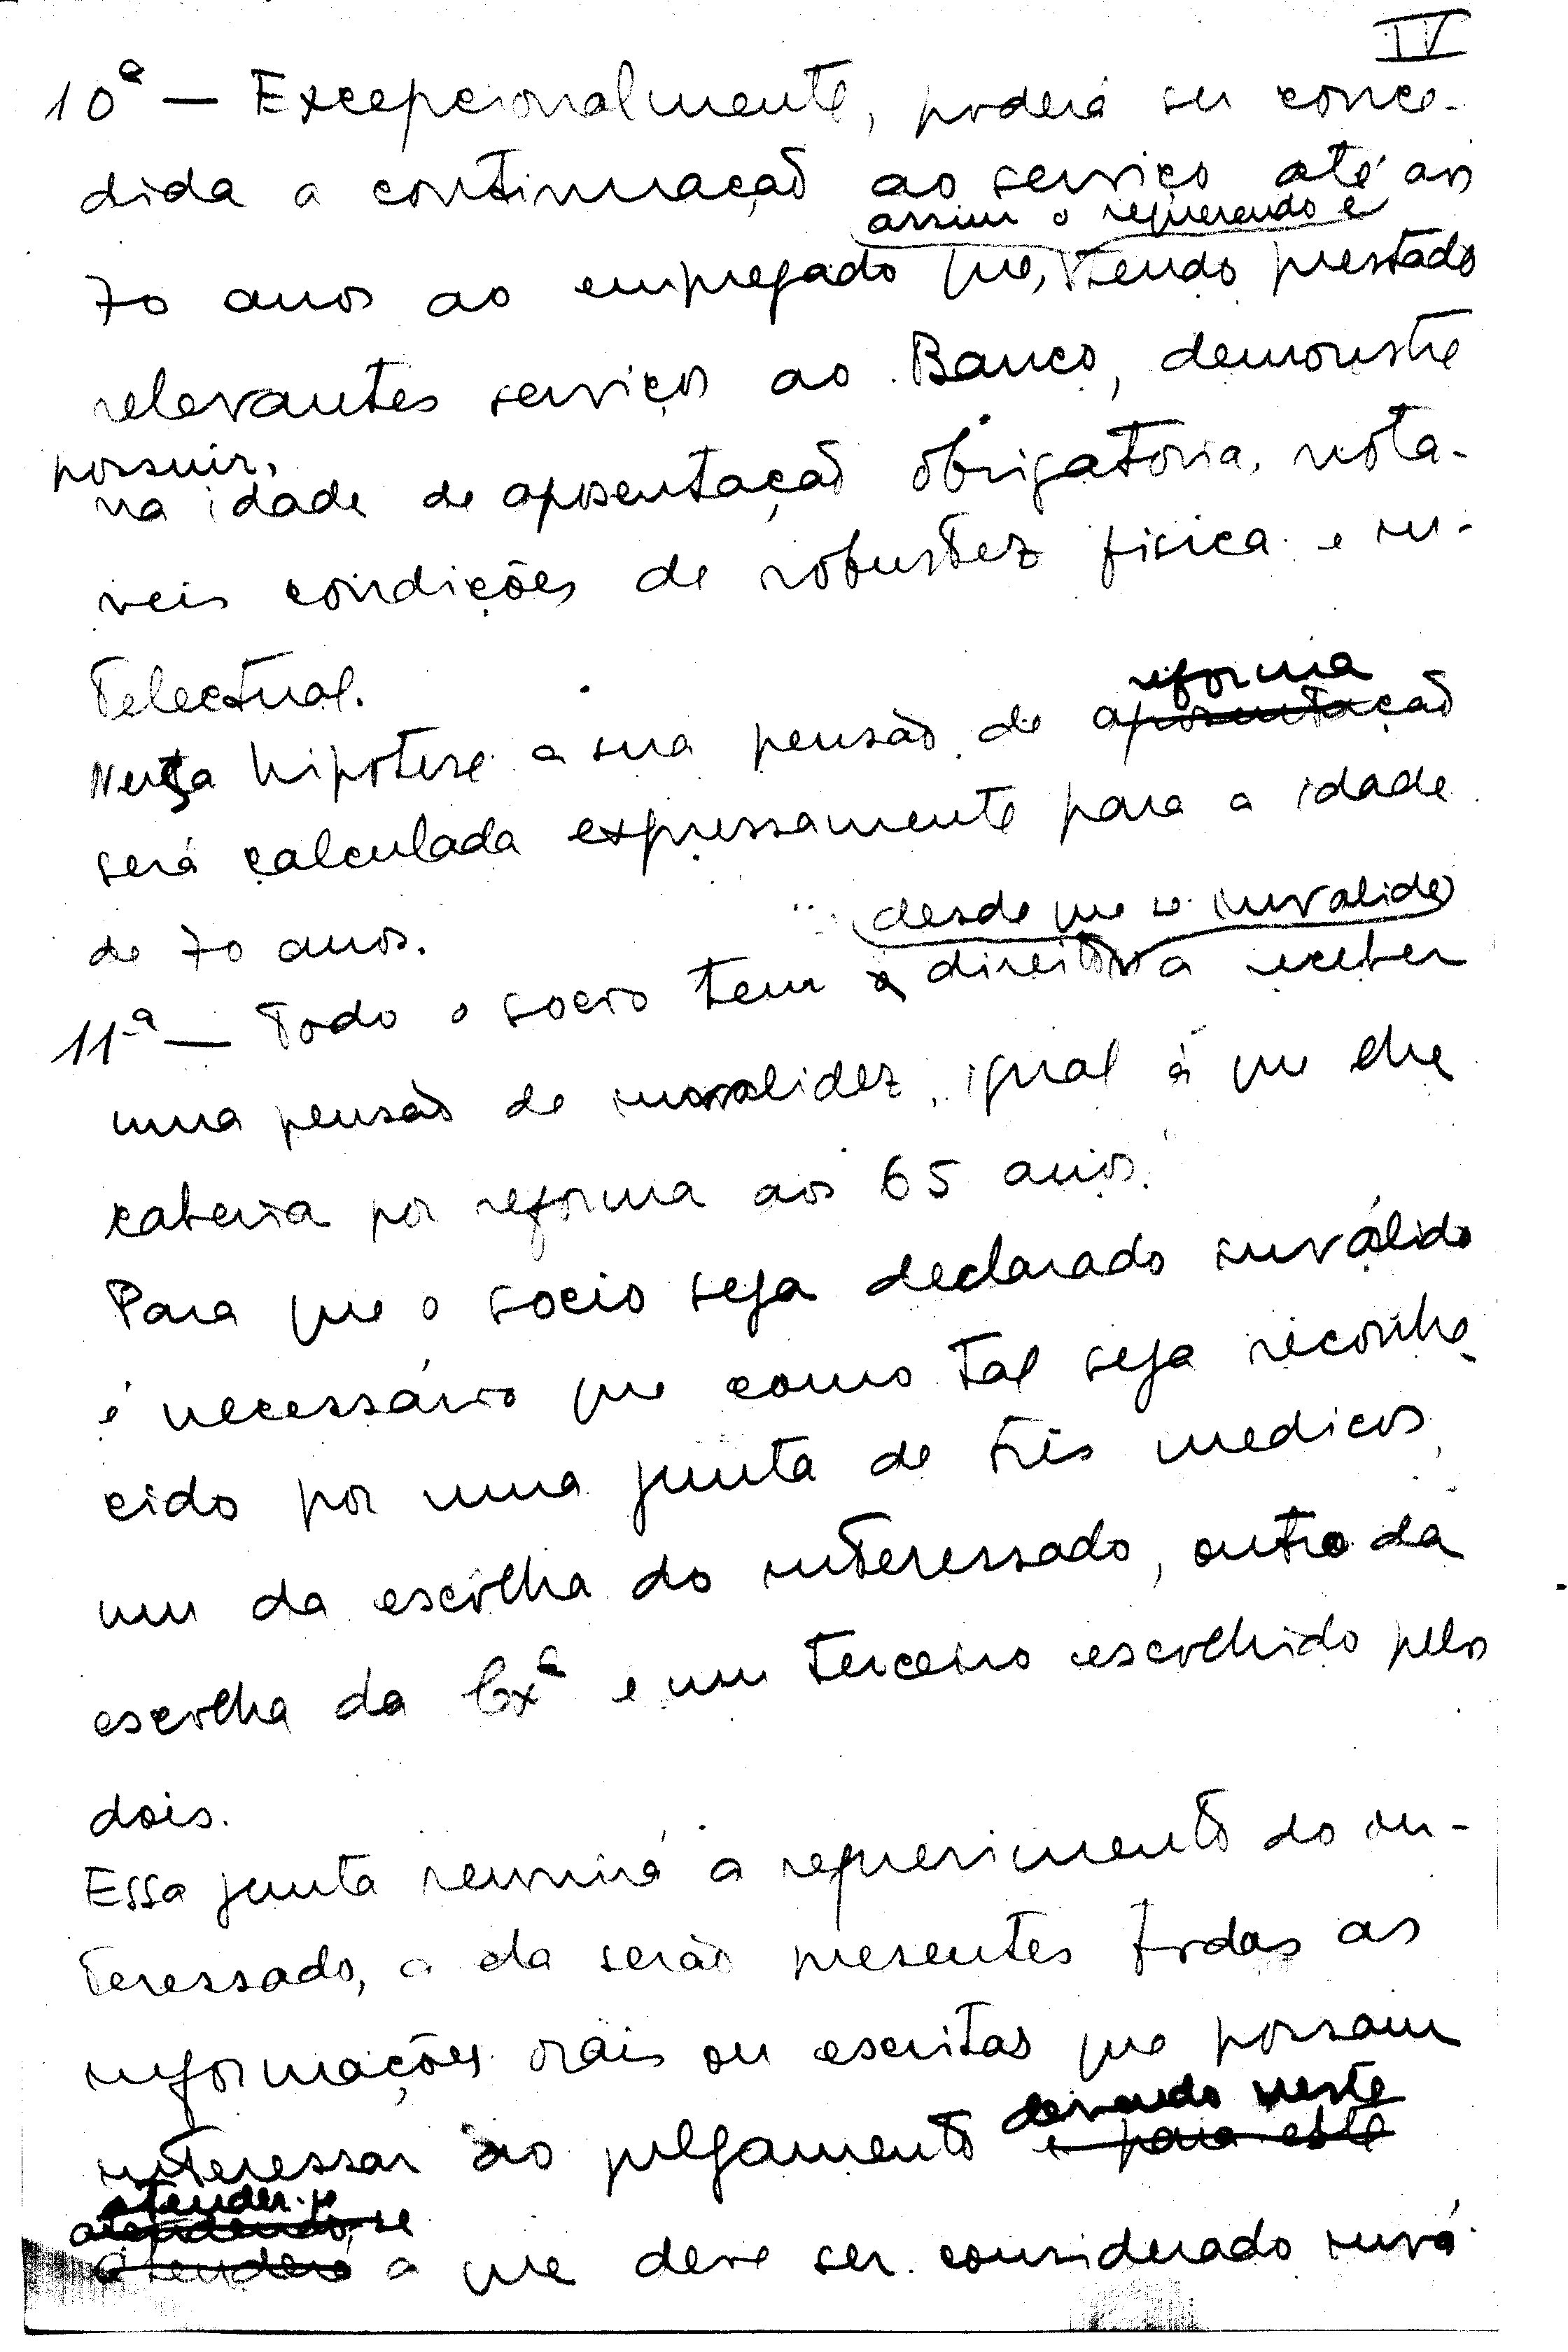 IV
10ª — Excepcionalmente, poderá ser conce-
dida a continuação ao serviço até aos
assim o requerendo e
70 anos ao empregado que, tendo prestado
relevantes serviços ao Banco, demonstre
possuir,
na idade de aposentação obrigatoria, nota-
veis condições de robustez fisica e in-
telectual.
reforma
Nesta hipotese a sua pensão de aposentação
será calculada expressamente para a idade
de 70 anos.
desde que se invalide
11ª — Todo o socio tem o direito a receber
uma pensão de invalidez, igual á que lhe
caberia por reforma aos 65 anos.
Para que o socio seja declarado inválido
é necessário que como tal seja reconhe-
cido por uma junta de três medicos,
um da escolha do interessado, outro da
escolha da Cxª e um terceiro escolhido pelos
dois.
Essa junta reunirá a requerimento do in-
teressado, a ela serão presentes todas as
informações orais ou escritas que possam
devendo neste
interessar ao julgamento e para este
atender-se
atendendo-se
atenderá a que deve ser considerado invá-